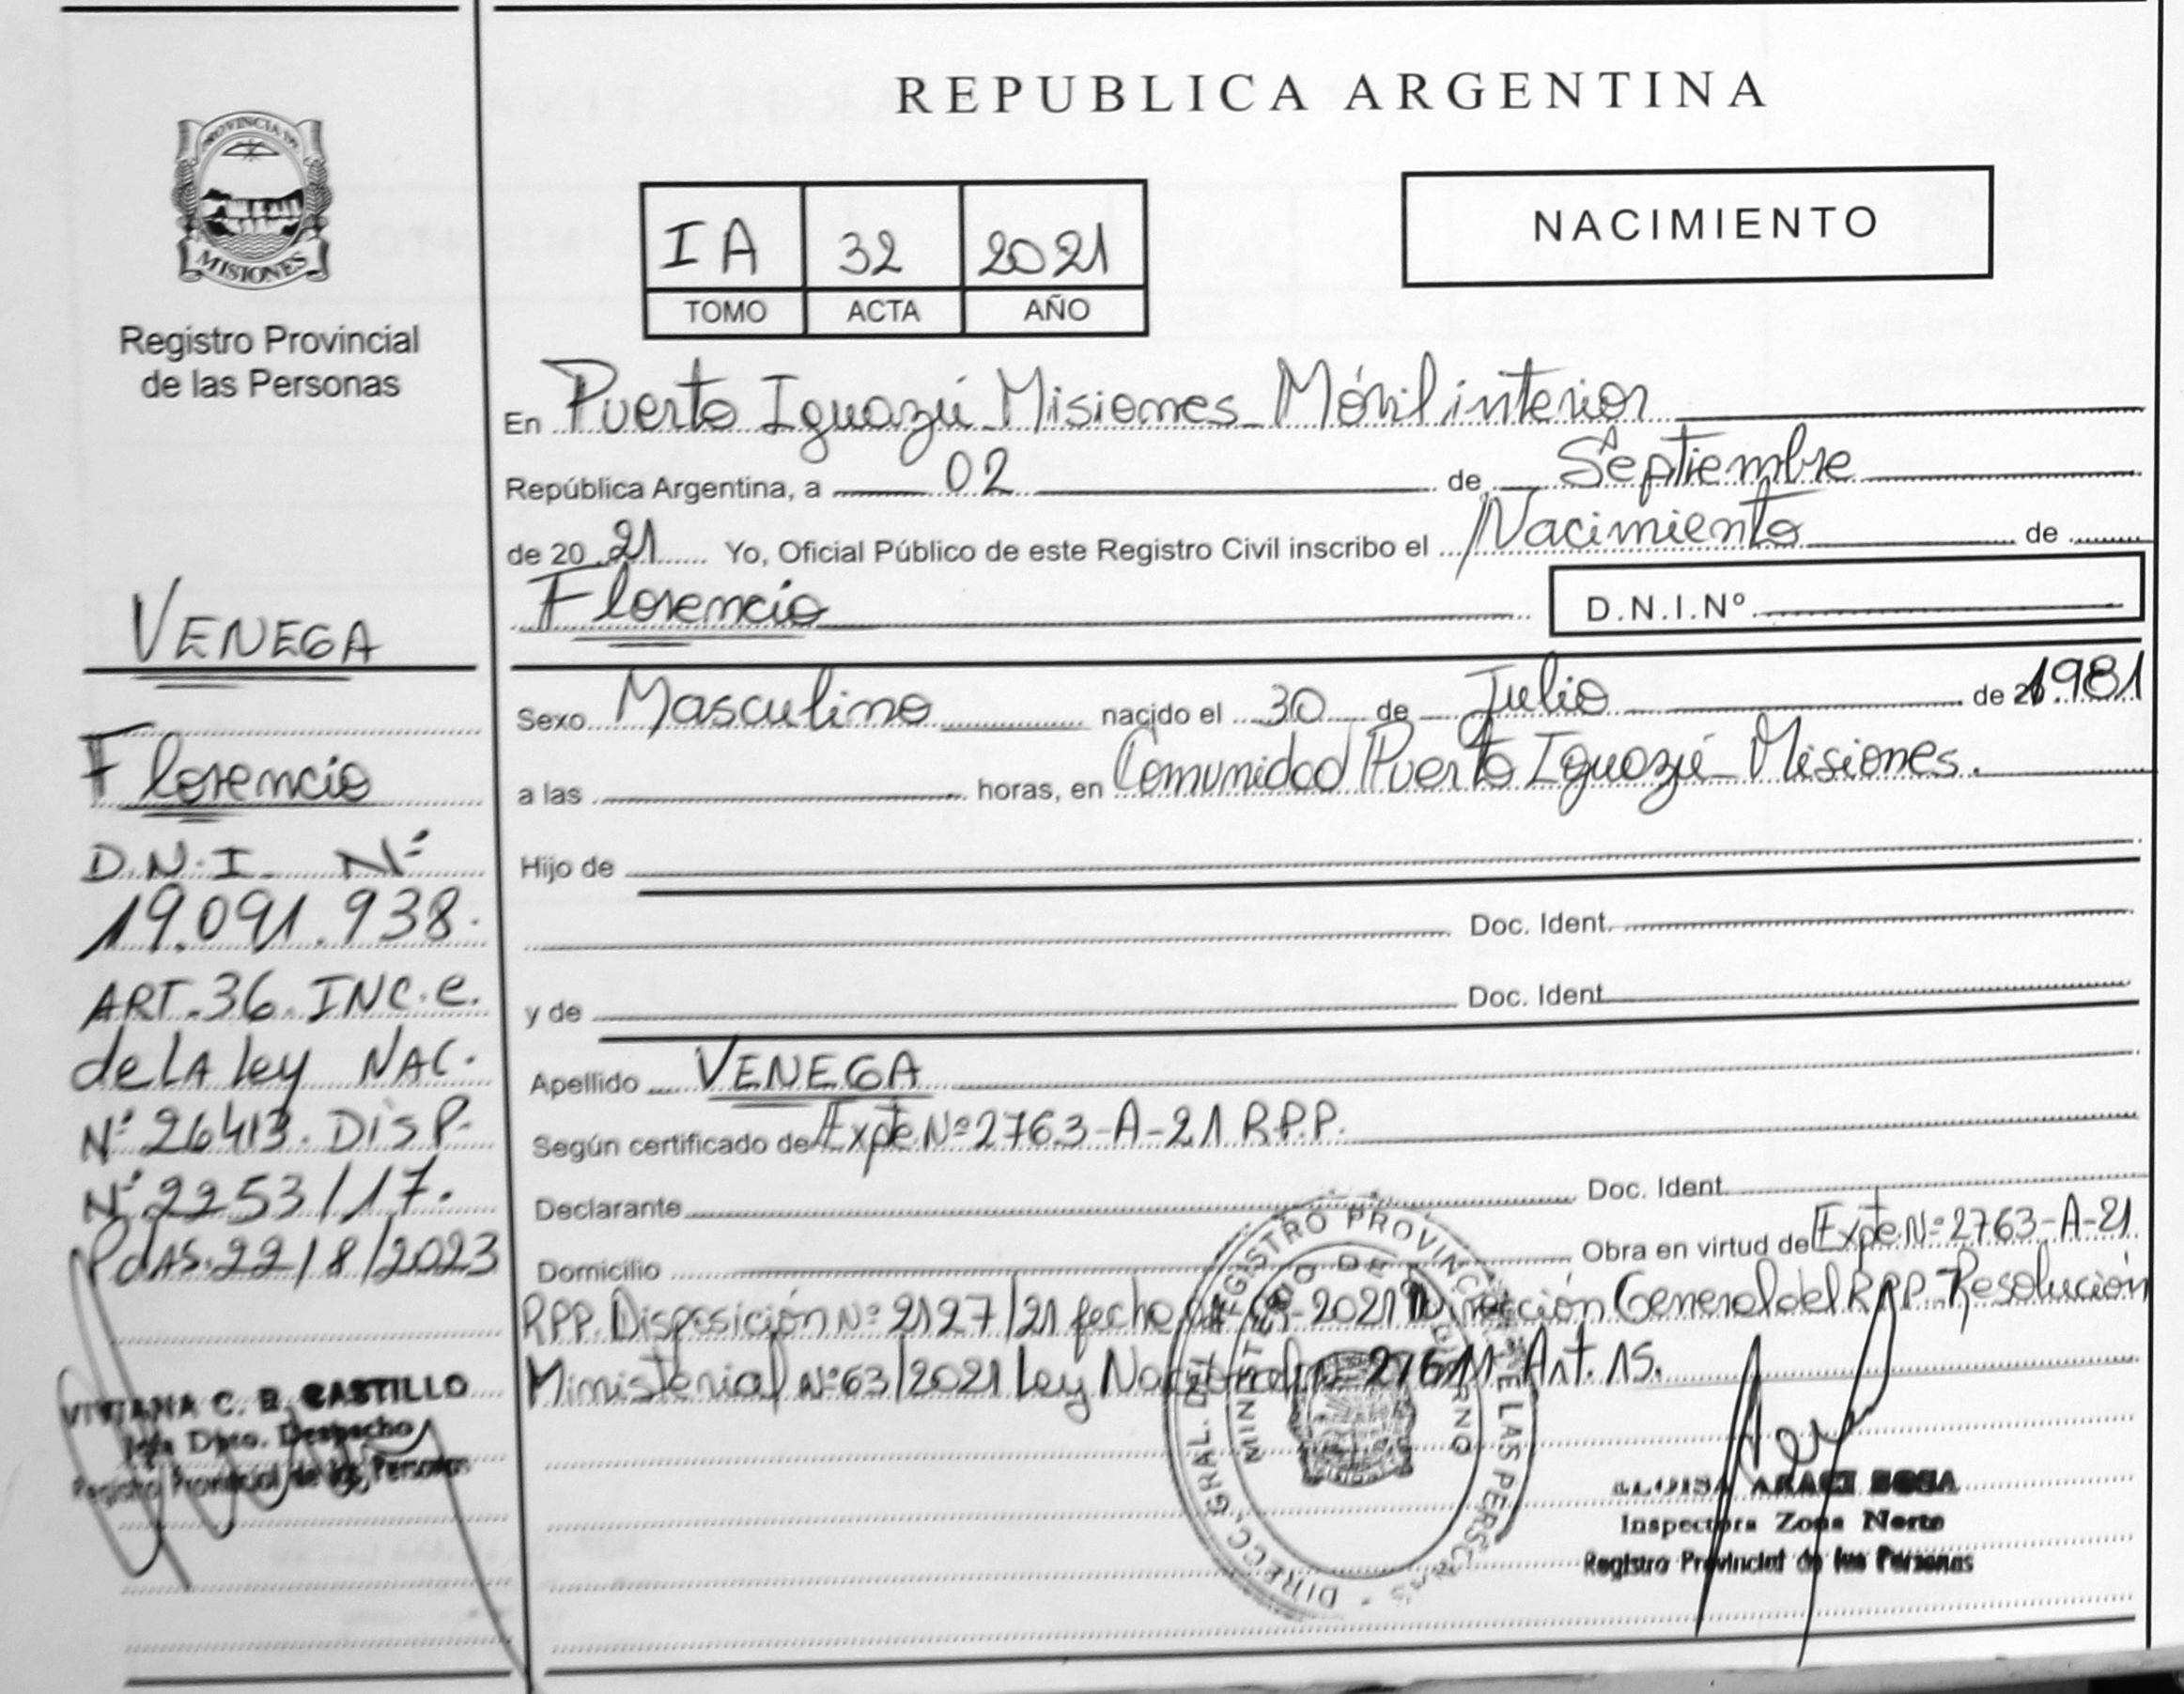 PROVINCIA DE
MISIONES
Registro Provincial
de las Personas
VENEGA
Florencio
D.N.I. Nº
19.091.938.
ART.36.INC.e.
de LA ley NAC.
Nº 26413. DISP.
Nº 2253/17.
Pdas.22/8/2023
VIVIANA C. B. CASTILLO
Jefa Dpto. Despacho
Registro Provincial de las Personas
REPUBLICA ARGENTINA
IA 32 2021
TOMO ACTA AÑO
NACIMIENTO
En Puerto Iguazú Misiones Móvil interior
República Argentina, a 02 de Septiembre
de 20 21 Yo, Oficial Público de este Registro Civil inscribo el Nacimiento de
Florencio D.N.I.Nº
Sexo Masculino nacido el 30 de Julio de 1981
a las horas, en Comunidad Puerto Iguazú Misiones.
Hijo de
Doc. Ident.
y de Doc. Ident.
Apellido VENEGA
Según certificado de Expte Nº 2763-A-21 R.P.P.
Declarante Doc. Ident.
Domicilio Obra en virtud de Expte.Nº 2763-A-21
RPP. Disposición Nº 2127/21 fecha -2021 Dirección General del R.P.P. Resolución
Ministerial Nº 63/2021 Ley Nacional 27611 Art. 15.
DIRECC. GRAL. DEL REGISTRO PROVINCIAL DE LAS PERSONAS
MINISTERIO DE GOBIERNO
ARACI SOSA
Inspectora Zona Norte
Registro Provincial de las Personas